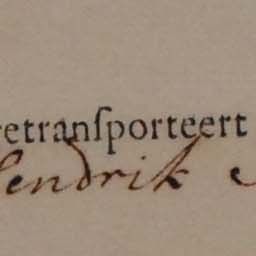 etranſporteert
Hendrik